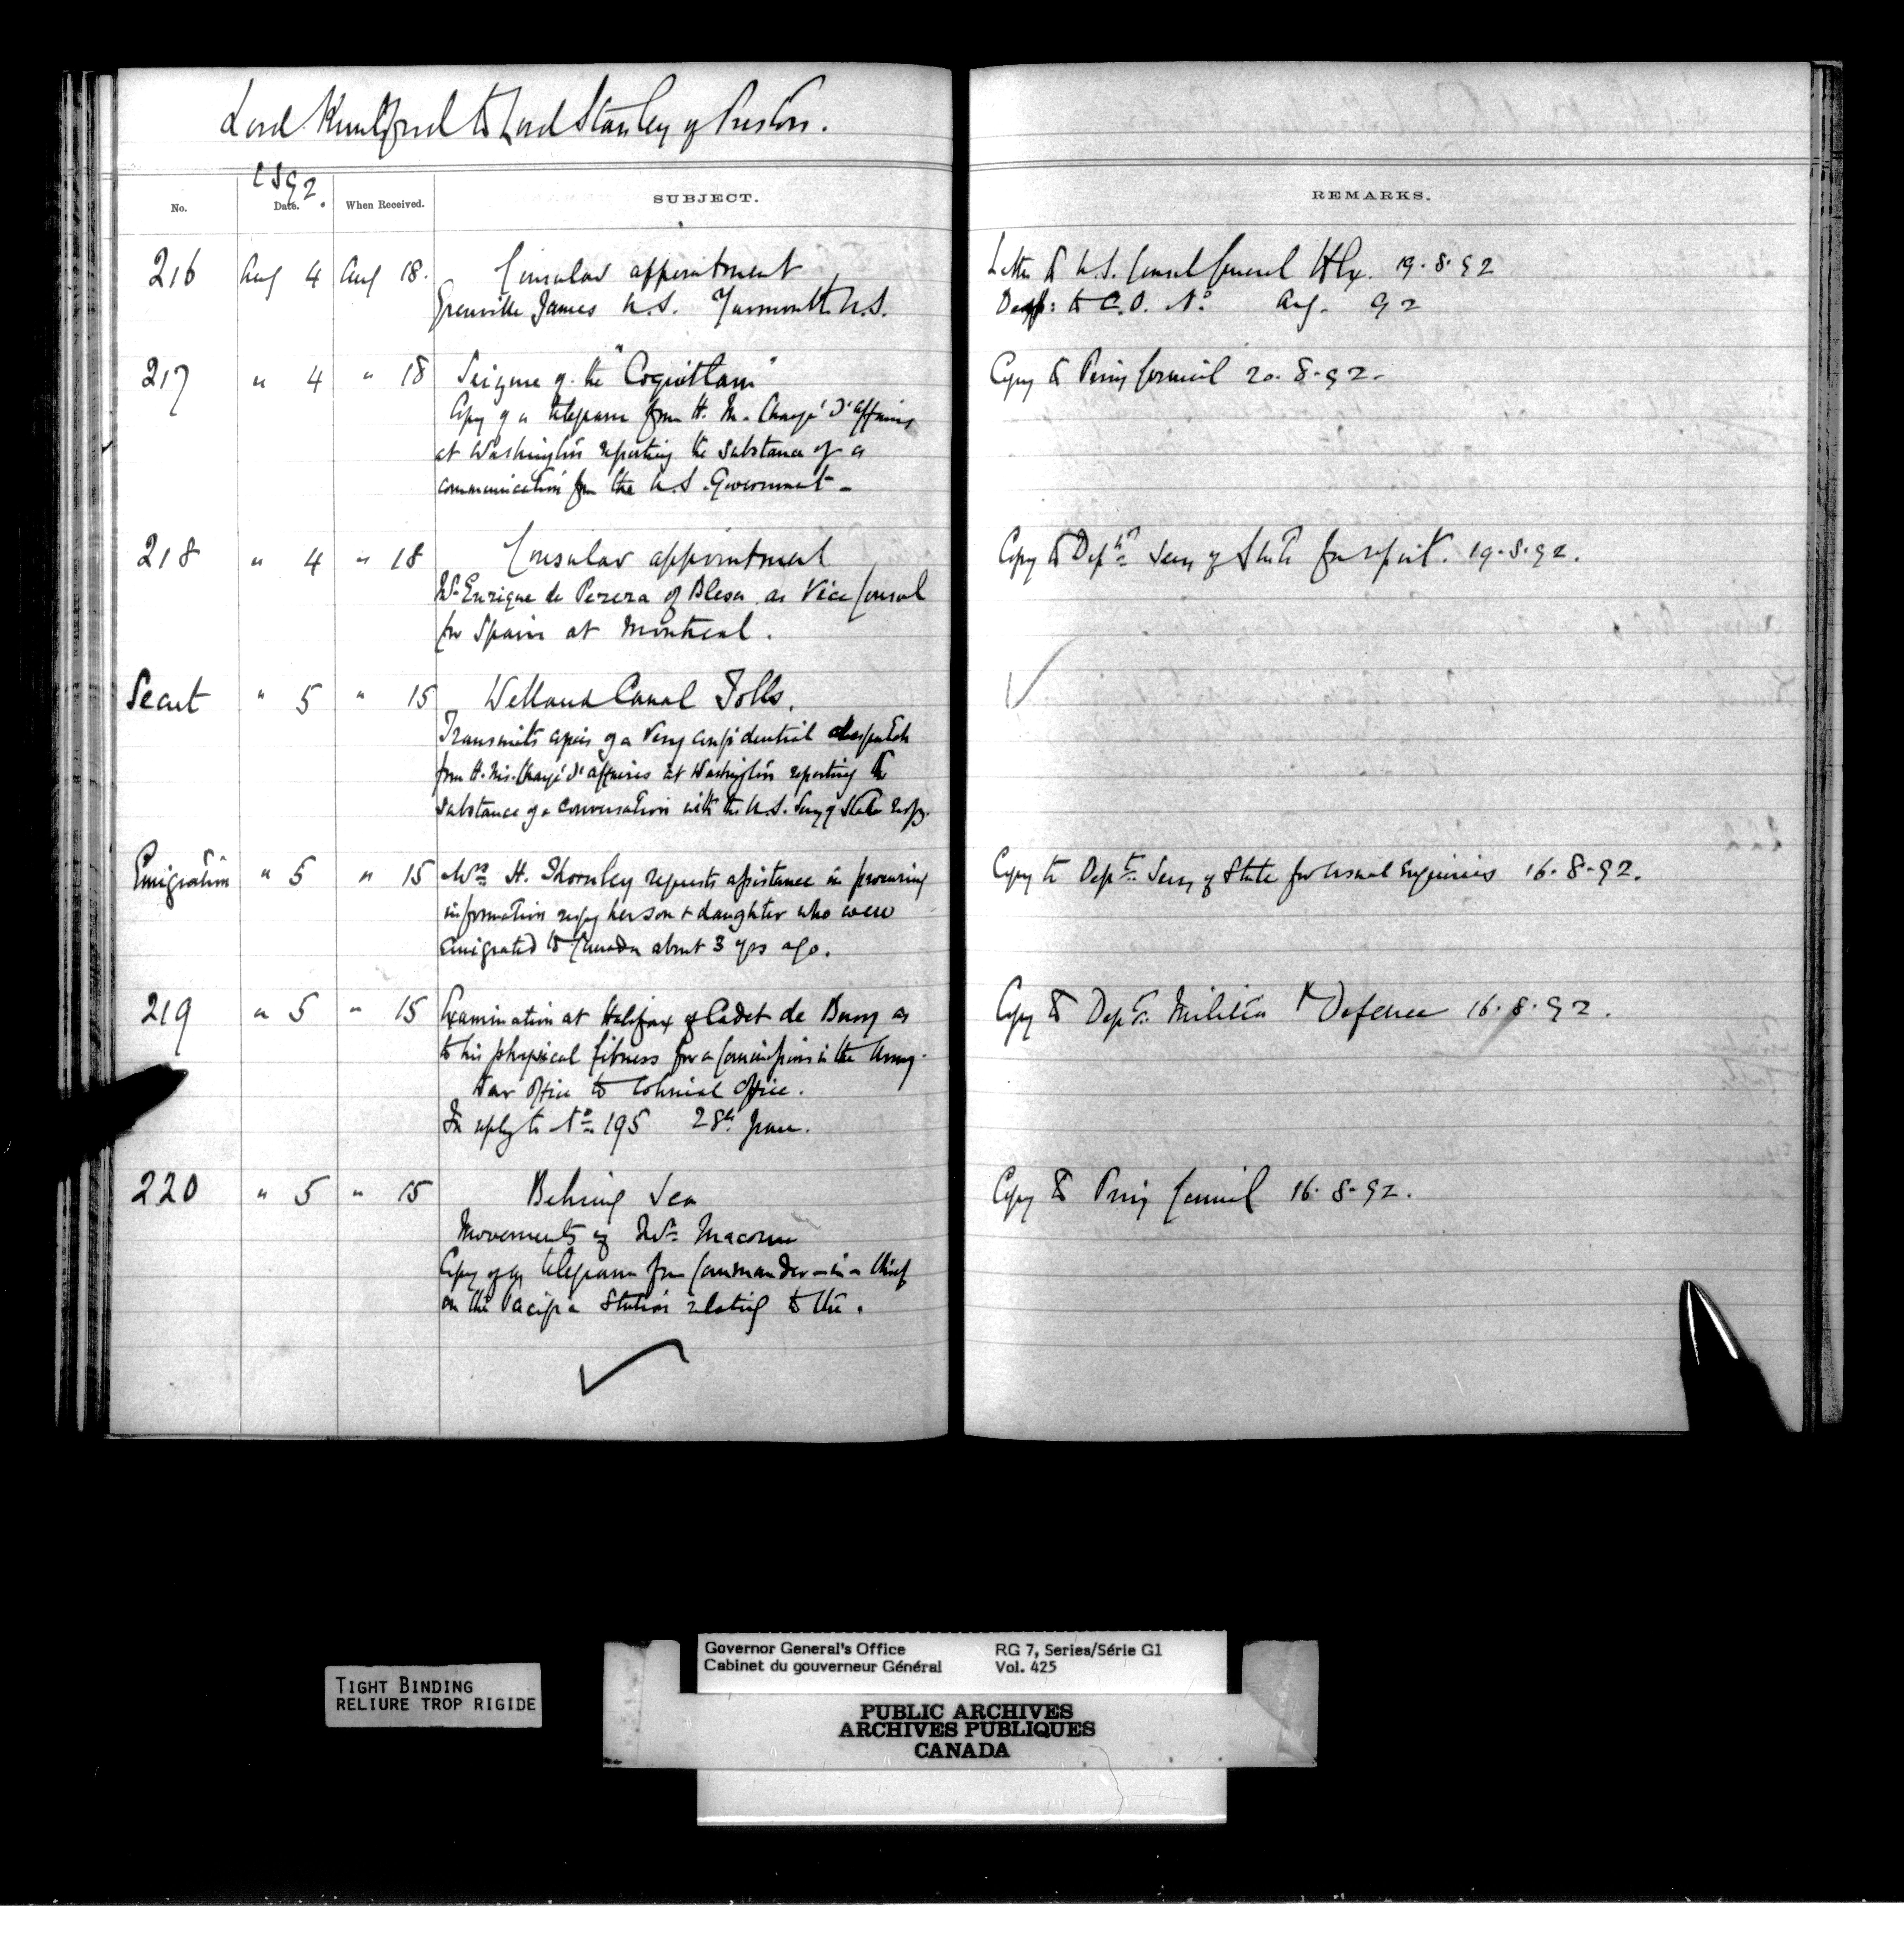 Lord Knutsford to Lord Stanley of Preston.
1892.
No. Date. When Received. SUBJECT. REMARKS.
216 Aug 4 Aug 18. Consular appointment
Grenville James U.S. Yarmouth N.S.
Letter to U.S. Consul General Hlx. 19.8.92
Desp: to C.O. No. Aug. 92
217 " 4 " 18 Seizure of the "Coquitlam"
Copy of a telegram from H.M. Chargé d'affaires
at Washington reporting the substance of a
communication from the U.S. Government -
Copy to Privy Council 20.8.92.
218 " 4 " 18 Consular appointment
Mr Enrique de Perera of Blesa as Vice Consul
for Spain at Montreal.
Copy to Dept Secy of State for report. 19.8.92.
Secret " 5 " 15 Welland Canal Tolls.
Transmits copies of a very confidential despatch
from H. M's. Chargé d'affaires at Washington reporting the
substance of a conversation with the U.S. Secy of State respg.
Emigration " 5 " 15 Mrs H. Thornley requests assistance in procuring
information respg her son & daughter who were
emigrated to Canada about 3 yrs ago.
Copy to Dept Secy of State for usual enquiries 16.8.92.
219 " 5 " 15 Examination at Halifax of Cadet de Bury as
to his physical fitness for a Commission in the Army.
War Office to Colonial Office.
In reply to No 195 28th June.
Copy to Dept Militia & Defence 16.8.92.
220 " 5 " 15 Behring Sea
Movements of Mr Macoun
Copy of a telegram from Commander-in-Chief
on the Pacific Station relating to the.
Copy to Privy Council 16.8.92.
TIGHT BINDING
RELIURE TROP RIGIDE
Governor General's Office
Cabinet du gouverneur Général
RG 7, Series/Série G1
Vol. 425
PUBLIC ARCHIVES
ARCHIVES PUBLIQUES
CANADA